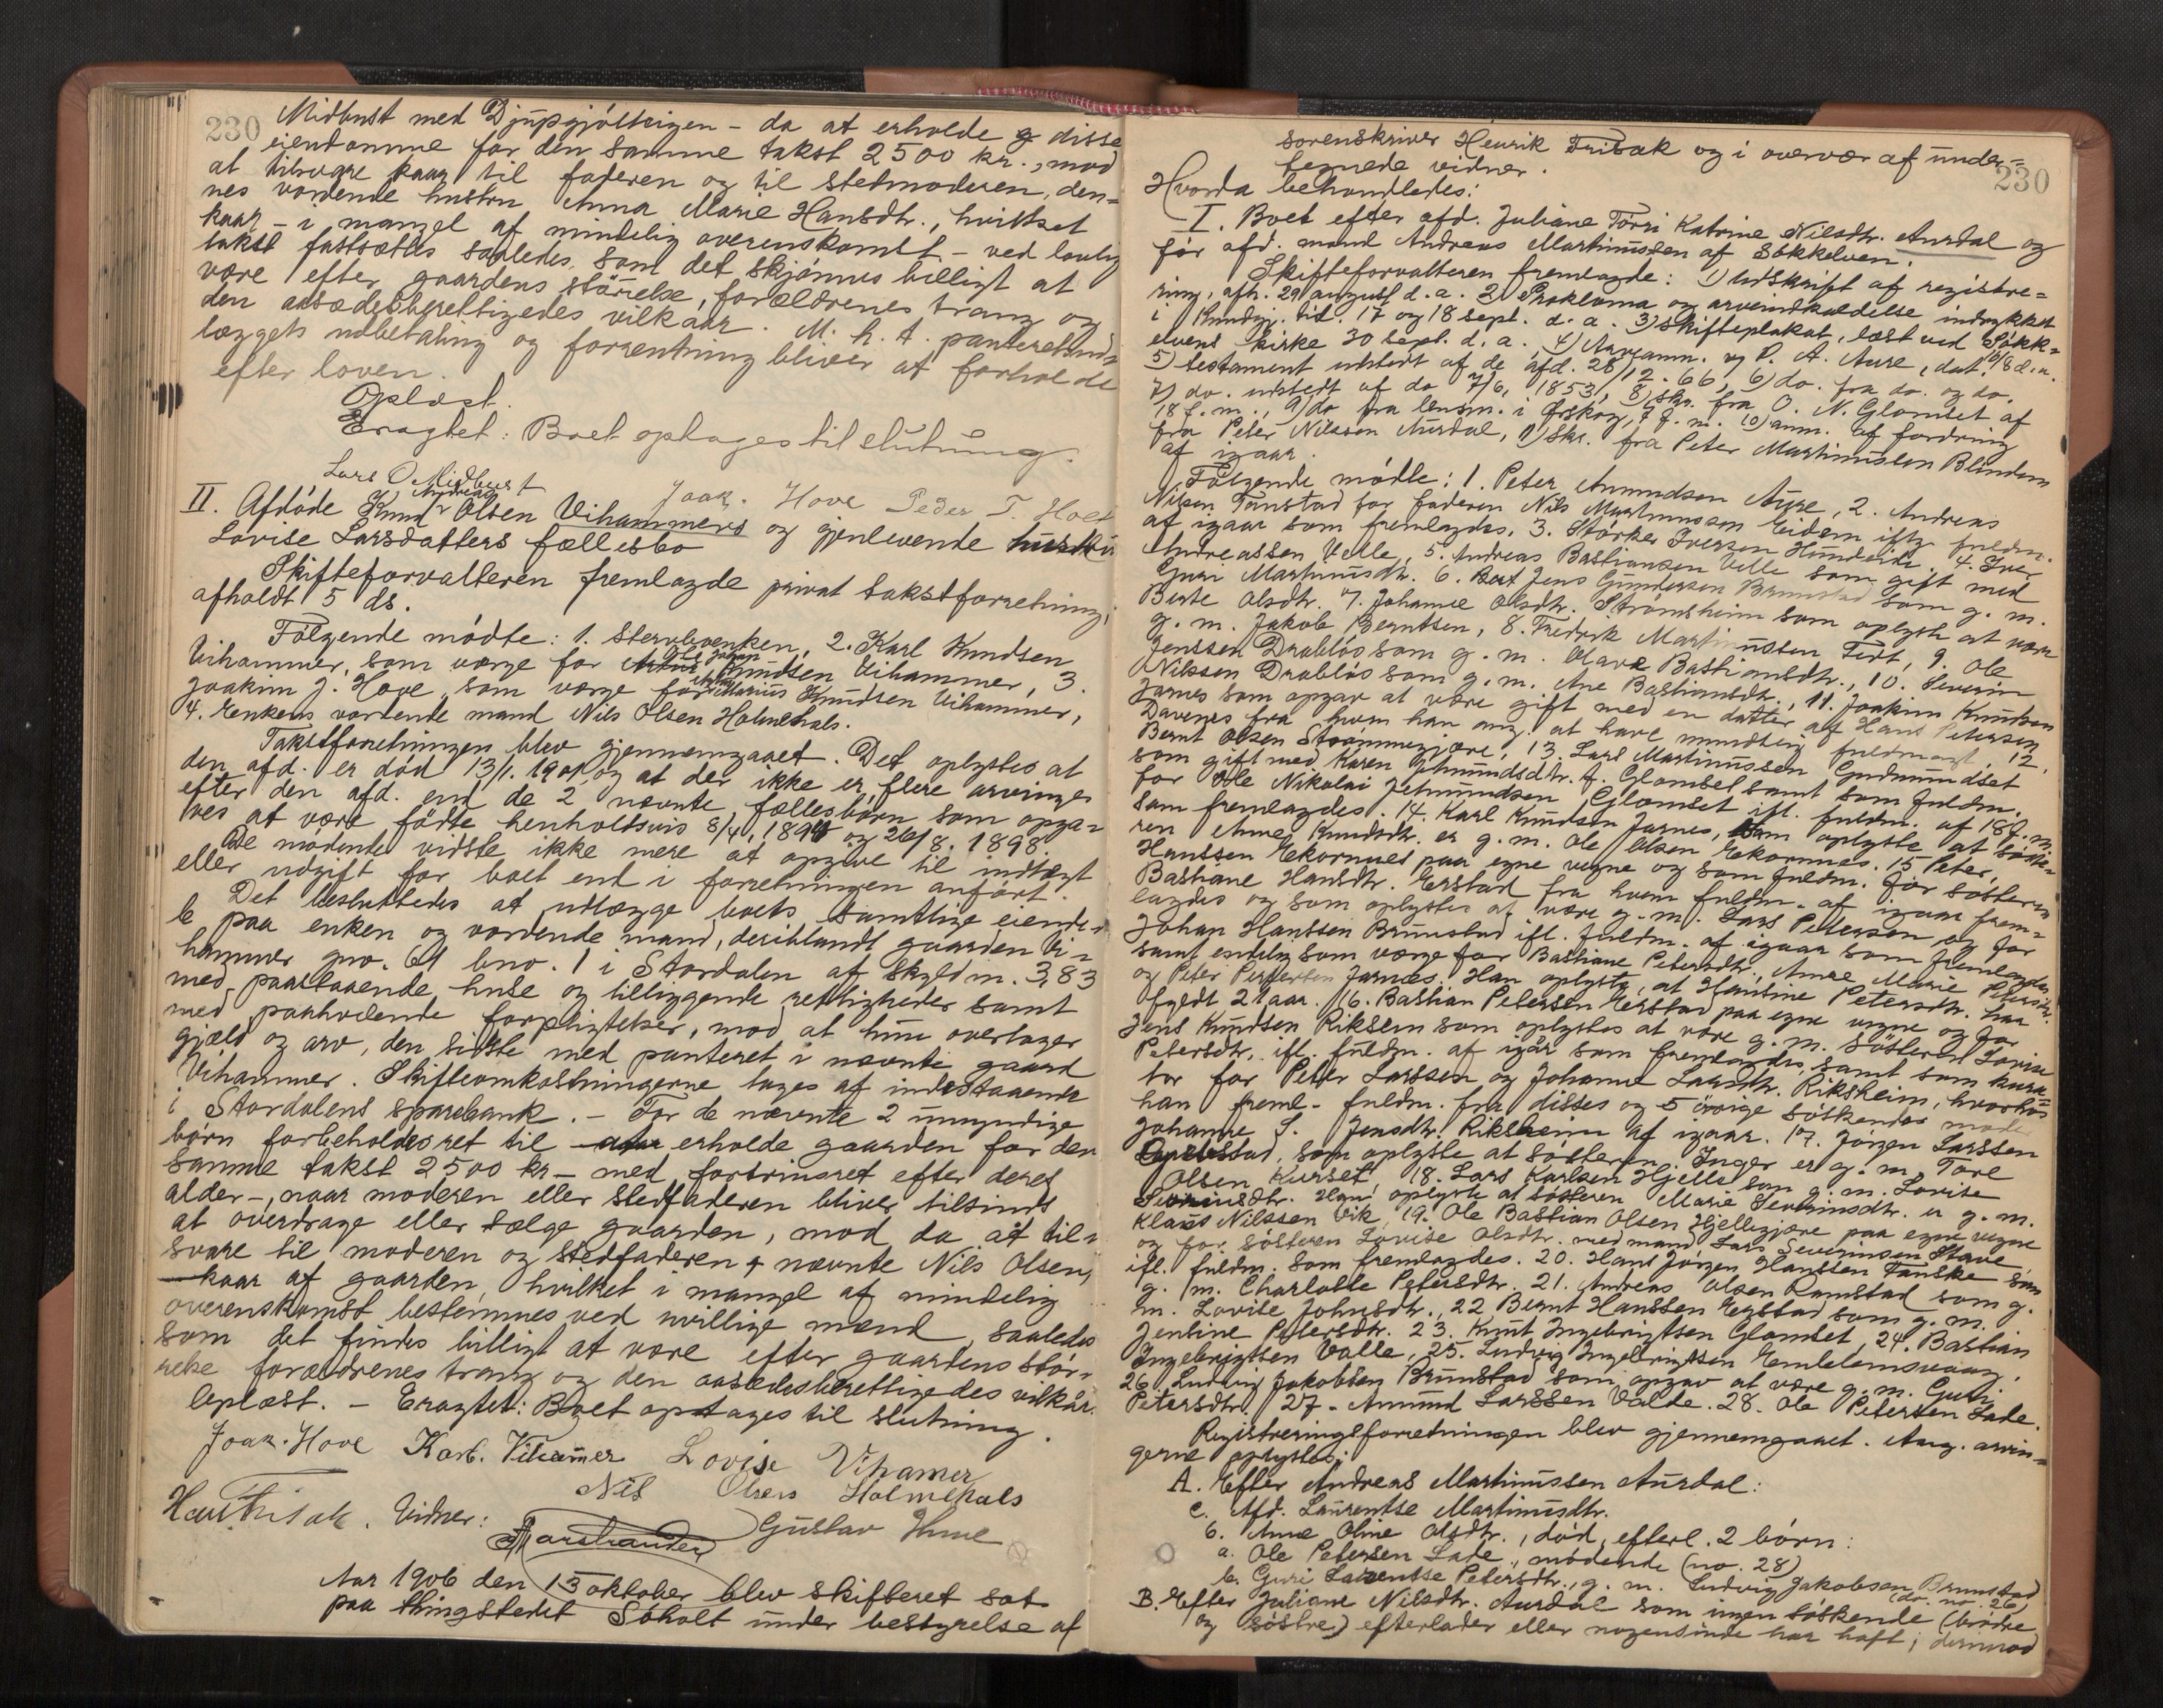 230
Midbust med Djupgjölteigen - da at erholde disse
eiendomme for den samme takst 2500 kr., mod
at tilsvare kaar til faderen og til stedmoderen, den-
nes vordende hustru Anna Marie Hansdtr., hvilket
kaar - i mangel af mindelig overenskomst - ved lovlig
takst fastsættes saaledes, som det skjønnes billigt at
være efter gaardens størrelse, forældrenes trang og
den aasædesberettigedes vilkaar. M. h. t. panteretund-
læggets udbetaling og forrentning bliver at forholde
efter loven.
Oplæst.
Eragtet: Boet optages til slutning.
Lars O. Midbust
Joak. Hove Peder T. Hove
II. Afdöde Knud Andreas Olsen Vihammers og gjenlevende hustru
Lovise Larsdatters fællesbo
Skifteforvalteren fremlagde privat takstforretning,
afholdt 5 ds.
Følgende mødte: 1. Stervbvenken, 2. Karl Knudsen
Vihammer, som værge for Ole Johan Knudsen Vihammer, 3.
Joakim J. Hove som værge for Marius Knudsen Vihammer,
4. Enkens vordende mand Nils Olsen Holmehals.
Takstforretningen blev gjennemgaaet. Det oplystes at
den afd. er död 13/1. 1901 og at der ikke er flere arvinger
efter den afd. end de 2 nævnte fællesbörn som opga-
ves at være fødte henholdsvis 8/4, 1894 og 26/8. 1898.
De mødende vidste ikke mere at opgive til indtægt
eller udgift for boet end i forretningen anført.
Det besluttedes at udlægge boets samtlige eiende-
le paa enken og vordende mand, deriblandt gaarden Vi-
hammer gno. 61 bno. 1 i Stordalen af skyld m. 3,83
med paastaaende huse og tilliggende rettigheder samt
med paahvilende forpligtelser, mod at hun overtager
gjæld og arv, den sidste med panteret i nævnte gaard
Vihammer. Skifteomkostningerne tages af indestaaende
i Stordalens sparebank. - For de nævnte 2 umyndige
börn forbeholdes ret til erholde gaarden for den
samme takst 2500 kr - med fortrinsret efter deres
alder -, naar moderen eller stedfaderen bliver tilsinds
at overdrage eller sælge gaarden, mod da at til-
svare til moderen og stedfaderen, nævnte Nils Olsen,
kaar af gaarden, hvilket i mangel af mindelig
overenskomst bestemmes ved uvillige mænd, saaledes
som det findes billigt at være efter gaardens stör-
relse forældrenes trang og den aasædesberettigedes vilkår.
Oplæst. - Eragtet: Boet optages til slutning.
Joak. Hove Karl. Vihamer Lovise Vihamer
Nils Olsen Holmehals
Vidner: Gustav
Aar 1906 den 13 oktober blev skifteret sat
paa thingstedet Söholt under bestyrelse af
230
sorenskriver Henrik Frisak og i overvær af under-
tegnede vidner.
Hvorda behandledes:
I. Boet efter afd. Juliane Törri Katrine Nilsdtr. Aursdal og
før afd. mand Andreas Martinussen af Sökkelven.
Skifteforvalteren fremlagde: 1) Udskrift af registre-
ring, afh. 29 august d. a. 2) Proklama og arveindkaldelse indrykket
i Kundgj. tid. 17 og 18 sept. d. a. 3) Skifteplakat, læst ved Sökk-
elvens kirke 30 sept. d. a. 4) Arveanm. og P. A. Aure, dat. 10/8 d. a.
5) testament udstedt af de afd. 28/12. 66, 6) do. fra do. og do.
7) do. udstedt af do 7/6, 1853, 8) skr. fra O. N. Glomset af
18 f. m., 9) do fra lensm. i Ørskog, f. m. 10) anm. af fordring
fra Peter Nilssen Aursdal, 11) Skr. fra Peter Martinussen Blindem
af igaar.
Følgende mødte: 1. Peter Amundsen Aure, 2. Andreas
Nilsen Tanstad for faderen Nils Martinussen Eidem iflg. fuldm.
af igaar som fremlagdes, 3. Størker Iversen Hundeide. 4. Iver
Andreassen Velle, 5. Andreas Bastiansen Velle som gift med
Guri Martinusdtr. 6. Jens Gundersen Brunstad som g. m.
Berte Olsdtr. 7. Johanne Olsdtr. Strömsheim som oplyste at være
g. m. Jakob Berntsen, 8. Fredrik Martinussen Fet, 9. Ole
Jenssen Drabløs som g. m. Olava Bastiansdtr., 10. Severin
Nilssen Drabløs som g. m. Ane Bastiansdtr., 11. Joakim Knudsen
Jarnes som opgav at være gift med en datter af Hans Petersen
Davenes fra hvem han ang. at have mundtlig fuldmagt. 12.
Bernt Olsen Strømmegjære, 13. Lars Martinussen Gudmundset
som gift med Karen Jetmundsdtr. f. Glomset samt som fuldm.
for Ole Nikolai Jetmundsen Glomset ifl. fuldm. af 18 f. m.
som fremlagdes. 14. Karl Knudsen Jarnes, som oplyste at søste-
ren Anne Knudsdtr. er g. m. Ole Olsen Ekornnes. 15 Peter
Hanssen Ekornnes paa egne vegne og som fuldm. for søsteren
Bastiane Hansdtr. Erstad fra hvem fuldm. af igaar frem-
lagdes og som oplystes at være g. m. Lars Petersen og for
Johan Hanssen Brunstad ifl. fuldm. af igaar som fremlagdes
samt endelig som værge for Bastiane Petersdtr., Anne Marie Petersdtr.
og Peter Petersen Jarnes. Han oplyste, at Hansine Petersdtr. har
fyldt 21 aar. 16. Bastian Petersen Erstad paa egne vegne og for
Jens Knudsen Riksem som oplystes at være g. m. søsteren Lovise
Petersdtr. ifl. fuldm. af igår som fremlagdes, samt som kura-
tor for Peter Larssen og Johanne Larsdtr. Riksheim, hvorhos
han freml. fuldm. fra disses og 5 øvrige søskendes moder
Johanne S. Jensdtr. Riksheim af igaar. 17. Jörgen Larssen
som oplyste at søsteren Inger er g. m. Tore
Olsen Kurset, 18. Lars Karlsen Hjelle som g. m. Lovise
Severinsdtr. Han oplyste at søsteren Marie Severinsdtr. er g. m.
Klaus Nilssen Vik, 19. Ole Bastian Olsen Hjellegjære paa egne vegne
og for søsteren Lovise Olsdtr. med mand Lars Severinsen Stave
ifl. fuldm. som fremlagdes. 20. Hans Jörgen Hanssen Tanske som
g. m. Charlotte Petersdtr. 21. Andreas Olsen Ramstad som g.
m. Lovise Johnsdtr., 22 Bernt Hanssen Erstad som g. m.
Jentine Petersdtr. 23. Knut Ingebrigtsen Glomset, 24. Bastian
Ingebrigtsen Valle, 25. Ludvig Ingebrigtsen Emblemsvaag,
26. Ludvig Jakobsen Brunstad som opgav at være g. m. Guri
Petersdtr. 27. Amund Larssen Valde. 28. Ole Petersen Lade.
Registreringsforretningen blev gjennemgaaet. Ang. arvin-
gerne oplystes:
A. Efter Andreas Martinussen Aursdal:
c. Afd. Laurentse Martinusdtr.
b. Ane Oline Olsdtr., død, efterl. 2 børn:
a. Ole Petersen Lade, mødende (no. 28)
b. Guri Laurentse Petersdtr., g. m. Ludvig Jakobsen Brunstad
(do. no. 26)
B. Efter Juliane Nilsdtr. Aursdal som ingen søskende (brødre
og søstre) efterlader eller nogensinde har haft; derimod